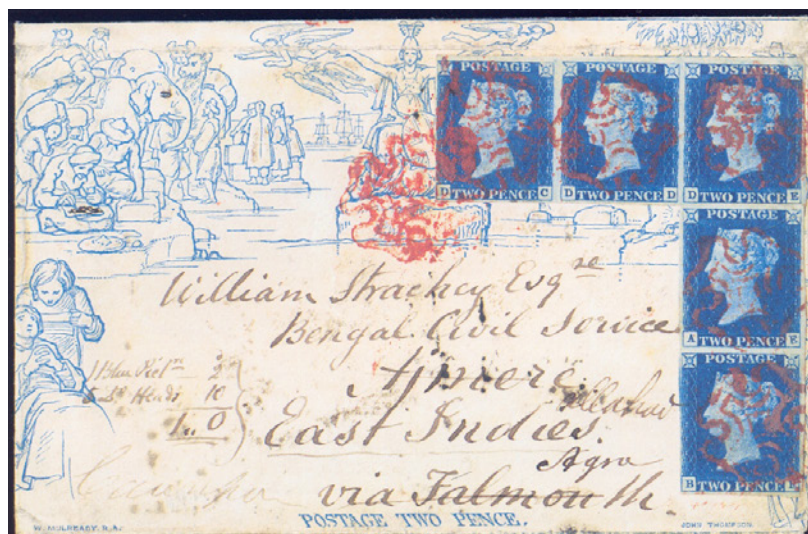 POSTAGE POSTAGE POSTAGE
D TWO PENCE C D TWO PENCE D D TWO PENCE E
POSTAGE
A TWO PENCE E
POSTAGE
B TWO PENCE
William Strachey Esqre
Bengal Civil Service
Ajmere
East Indies.
Agra
via Falmouth.
1 Blue 2
5 Heads 10
1 " 0
POSTAGE TWO PENCE.
W. MULREADY. R.A.
JOHN THOMPSON.